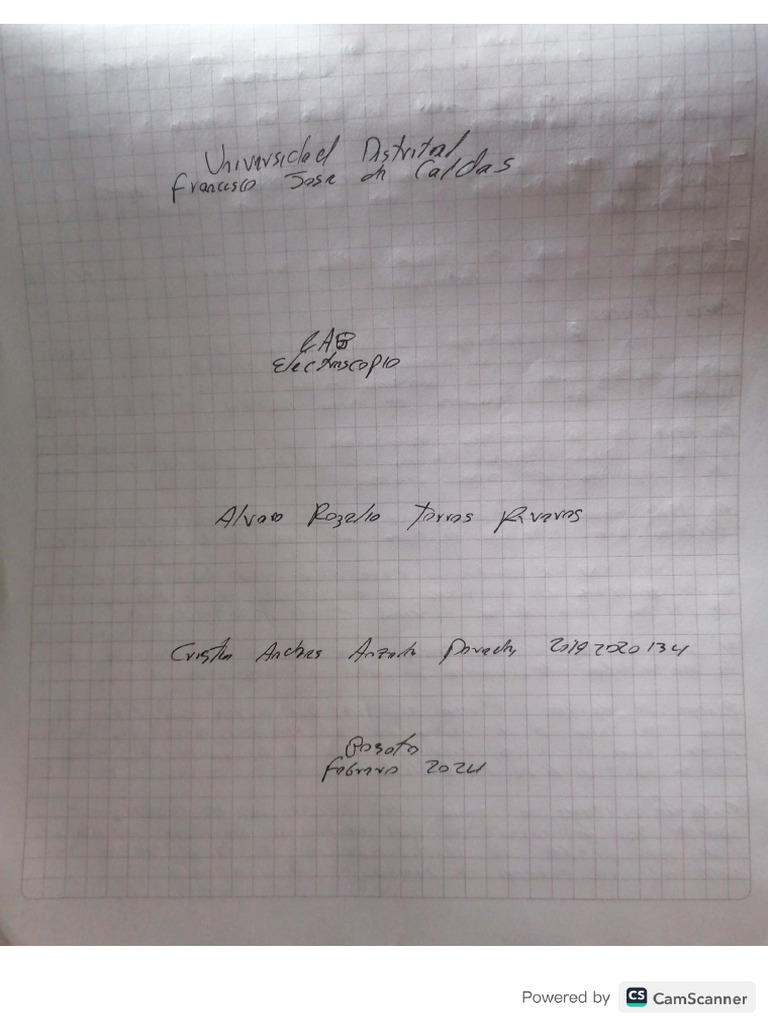 Universidad Distrital
Francisco Jose de Caldas
LAB
Electroscopio
Alvaro Rogelio Torres Riveros
Cristian Andres 20192020134
Bogota
Febrero 2024
Powered by CS CamScanner